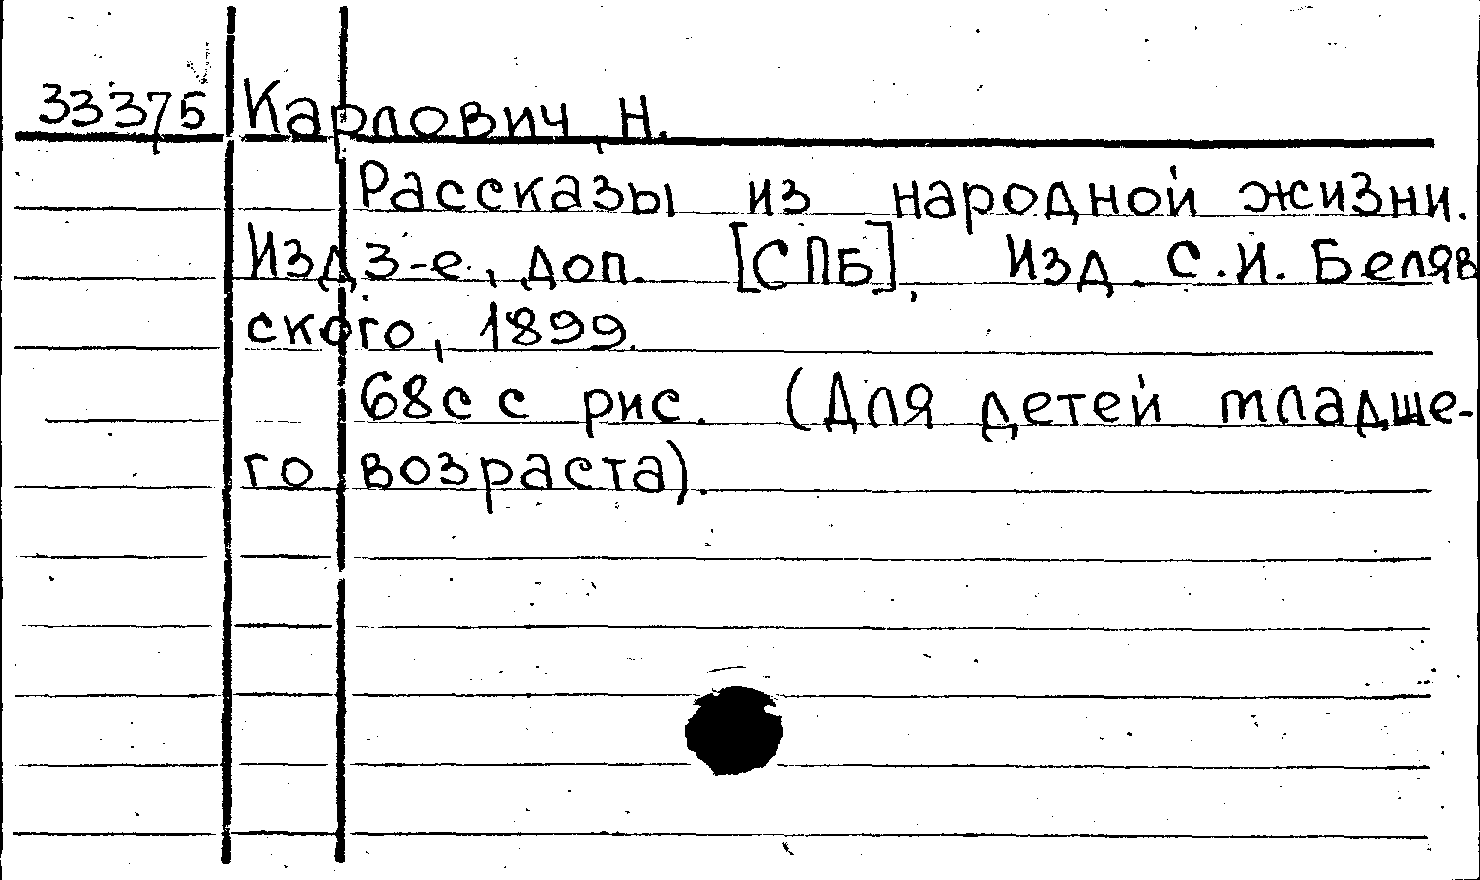 33375 Карлович, Н.
Рассказы из народной жизни.
Изд 3-е, доп. [СПБ], Изд. С.И. Беляв
ского, 1899.
68с с рис. (Для детей младше-
го возраста).